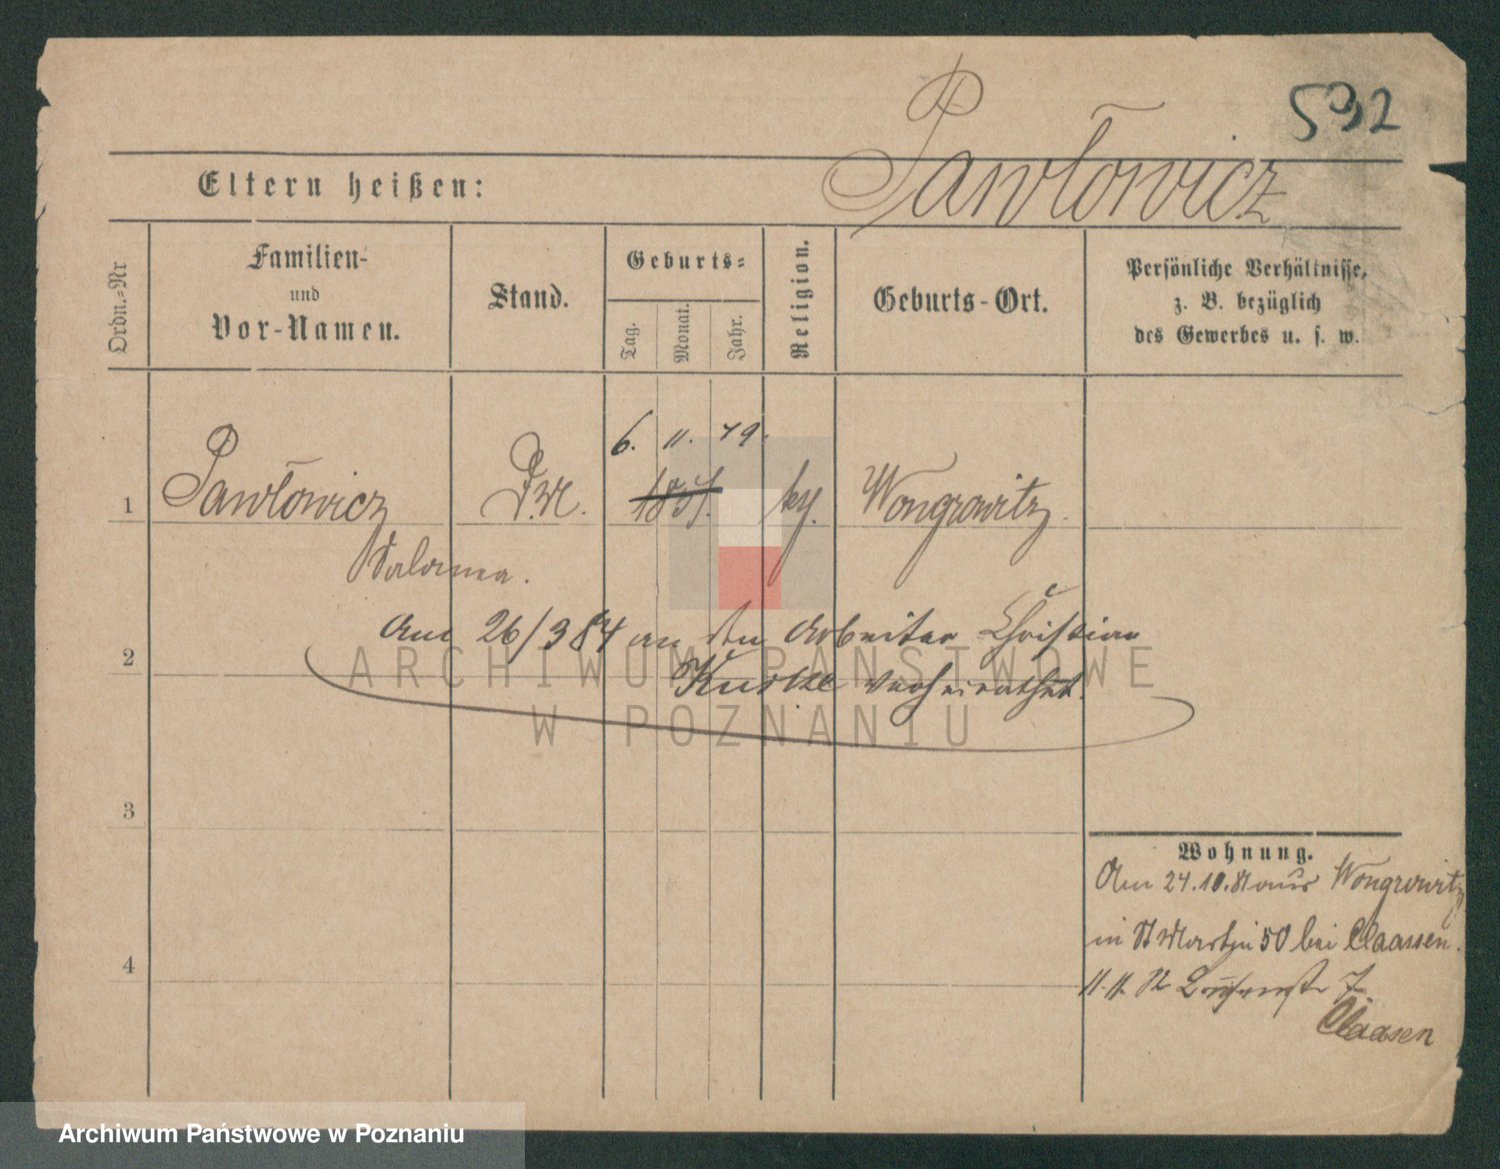 592
Pawłowicz
Eltern heißen:
Ordn.-Nr
Familien-
und
Vor-Namen.
Stand.
Geburts-
Tag.
Monat.
Jahr.
Religion.
Geburts-Ort.
Persönliche Verhältnisse,
z. B. bezüglich
des Gewerbes u. s. w.
6. 11. 79.
1 Pawłowicz 1857. Wongrowitz
Salomea.
Am 26/3 84 an den Arbeiter Christian
2
verheirathet.
ARCHIWUM PAŃSTWOWE
W POZNANIU
3
Wohnung.
Am 24.10.81 aus Wongrowitz
in St Martin 50 bei Claassen.
4
7
Claasen
Archiwum Państwowe w Poznaniu